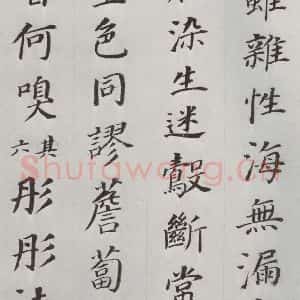 雖雜性海無漏
染生迷斷常
色同謬薝蔔
何嗅其六彤彤
Shufawang.cn